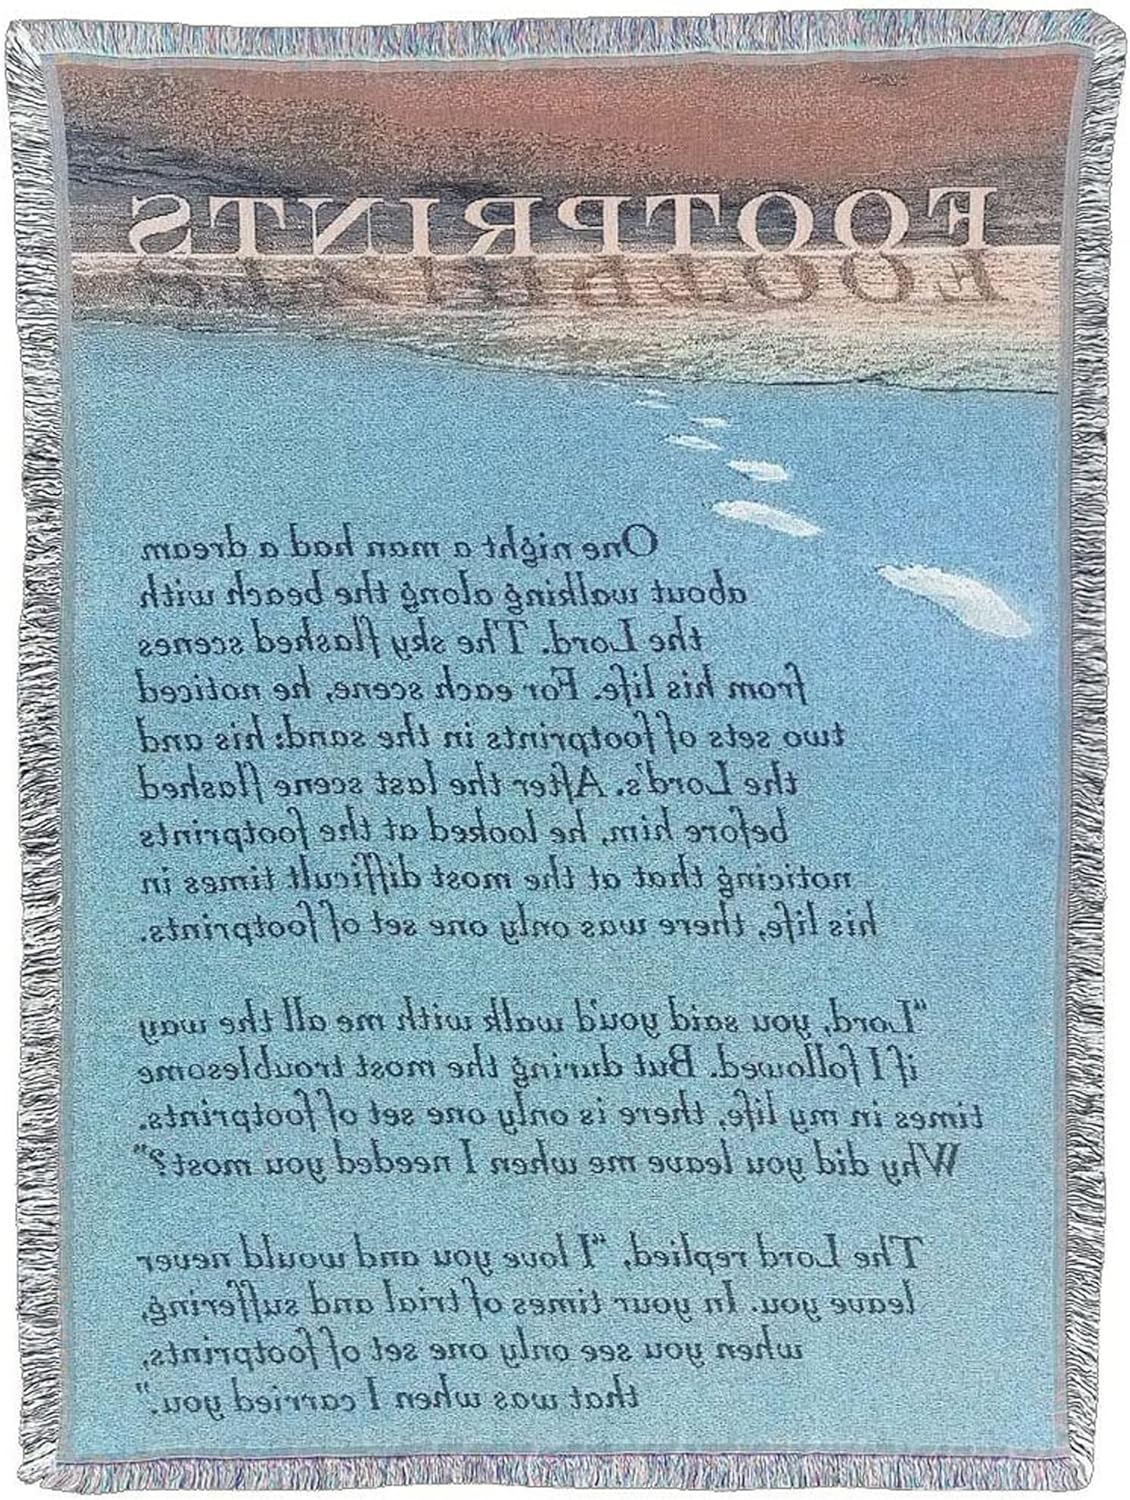 FOOTPRINTS
One night a man had a dream
about walking along the beach with
the Lord. The sky flashed scenes
from his life. For each scene, he noticed
two sets of footprints in the sand: his and
the Lord's. After the last scene flashed
before him, he looked at the footprints
noticing that at the most difficult times in
his life, there was only one set of footprints.
"Lord, you said you'd walk with me all the way
if I followed. But during the most troublesome
times in my life, there is only one set of footprints.
Why did you leave me when I needed you most?"
The Lord replied, "I love you and would never
leave you. In your times of trial and suffering,
when you see only one set of footprints,
that was when I carried you."